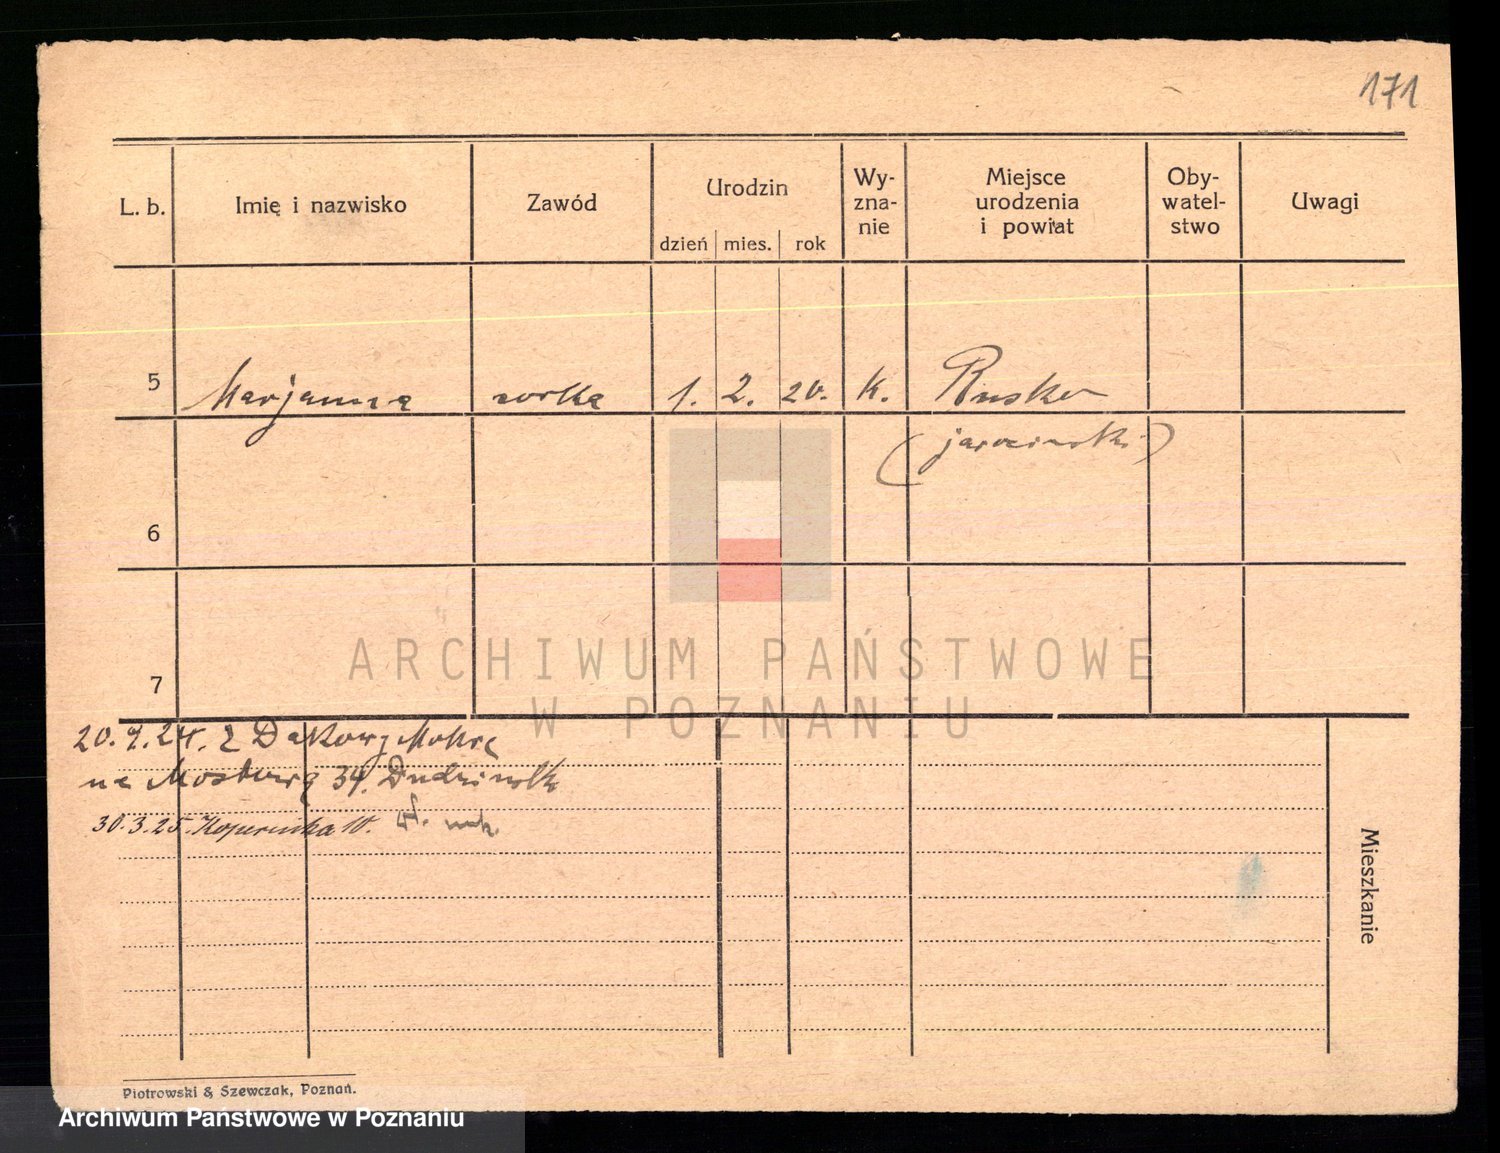 171
L. b.
Imię i nazwisko
Zawód
Urodzin
dzień
mies.
rok
Wy-
zna-
nie
Miejsce
urodzenia
i powiat
Oby-
watel-
stwo
Uwagi
5
Marjanna
corka
1.
2.
20.
K.
Rusko
(jarocinski)
6
7
ARCHIWUM PAŃSTWOWE
W POZNANIU
20. 9. 24. z Dakowy Mokre
na Mostową 34.
30.3.25. Kopernika 10.
Mieszkanie
Piotrowski & Szewczak, Poznań.
Archiwum Państwowe w Poznaniu